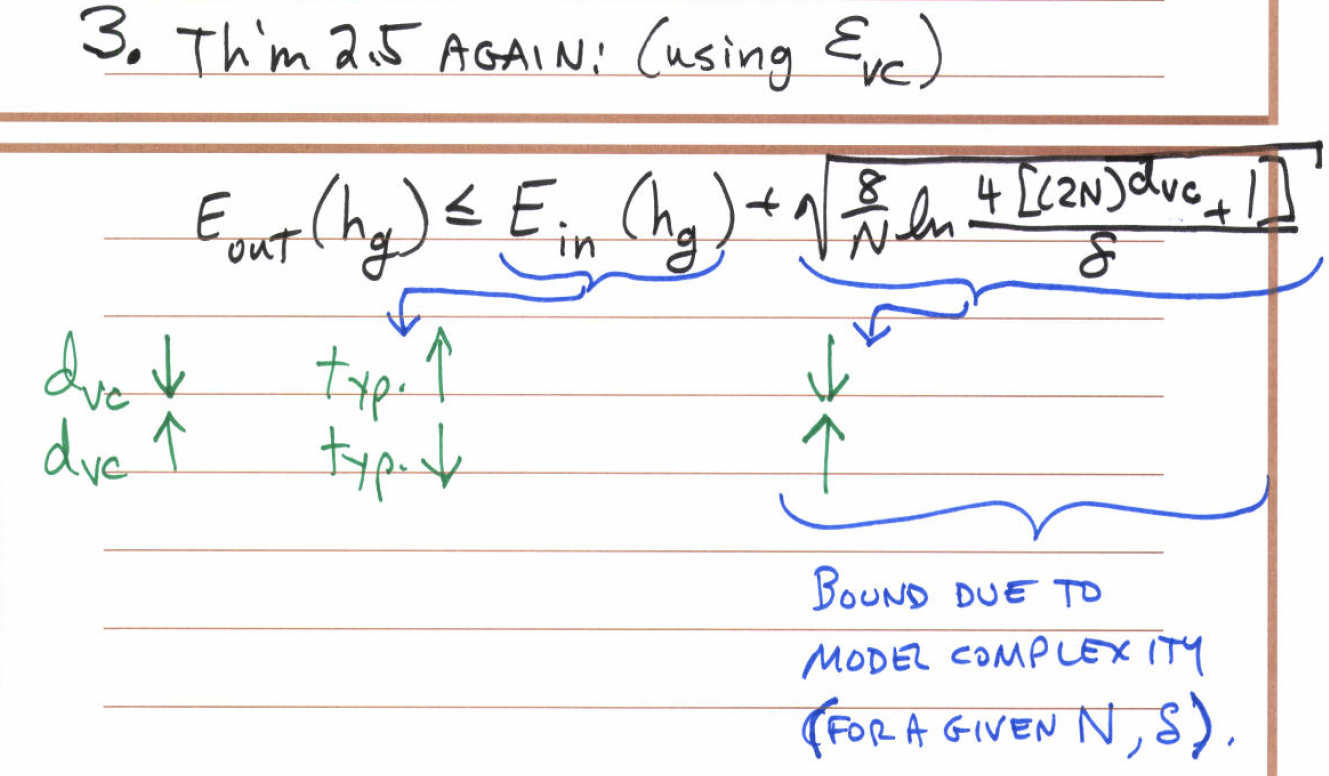 3. Th'm 2.5 AGAIN: (using ε_vc)
E_out(h_g) ≤ E_in(h_g) + √(8/N ln 4[(2N)^d_vc + 1]/δ)
d_vc ↓ typ. ↑ ↓
d_vc ↑ typ. ↓ ↑
BOUND DUE TO
MODEL COMPLEXITY
(FOR A GIVEN N, δ).